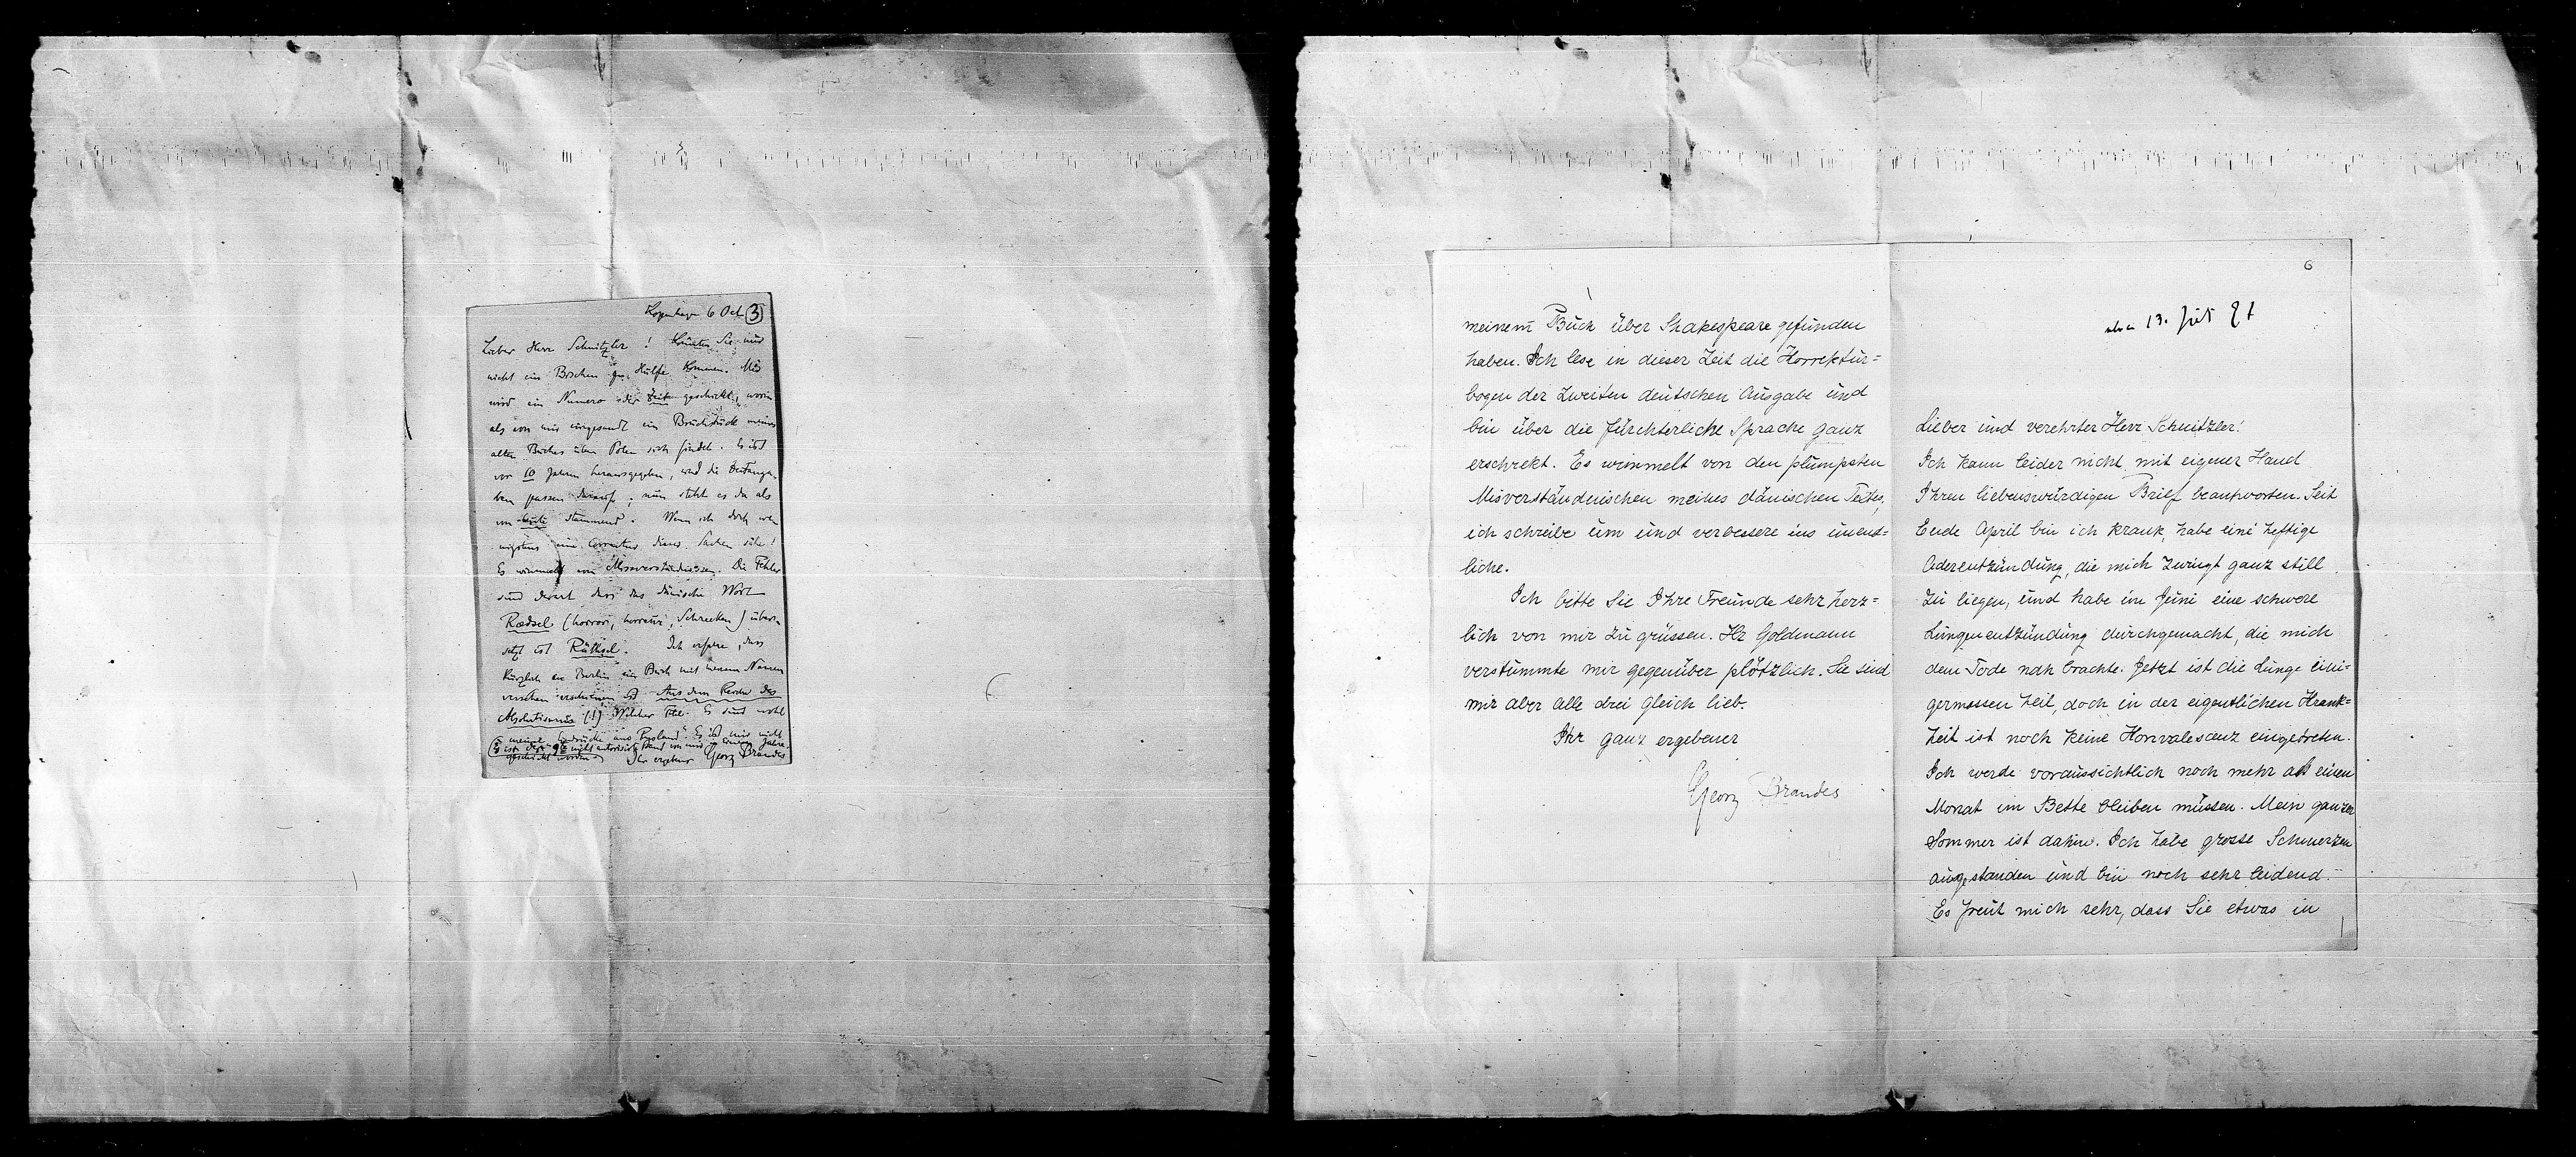 Kopenhagen 6 Oct 3
Lieber Herr Schnitzler! Könnten Sie mir
nicht ein Bischen zu Hülfe kommen. Mir
wird ein Numero der Zeit geschickt, worin
als von mir eingesandt ein Bruchstück meines
alten Buches über Polen sich findet. Es ist
vor 10 Jahren herausgegeben, und die Zeitanga-
ben passen darauf; nun steht es da als
von heute stammend. Wenn ich doch we-
nigstens eine Correctur dieser Sachen sähe!
Es wimmelt von Missverständnissen. Die Fehler
sind derart dass das dänische Wort
Rædsel (horror, horreur, Schrecken) über-
setzt ist Räthsel. Ich erfahre, dass
kürzlich in Berlin ein Buch mit meinem Namen
versehen erschienen ist Aus dem Reiche des
Absolutismus (!) Welcher Titel. Es sind wohl
meine Eindrücke aus Russland. Es ist mir nicht
geschickt worden Ihr ergebener Georg Brandes
6
13. Juli 97
Lieber und verehrter Herr Schnitzler!
Ich kann leider nicht mit eigener Hand
Ihren liebenswürdigen Brief beantworten. Seit
Ende April bin ich krank, habe eine heftige
Aderentzündung, die mich zwingt ganz still
zu liegen, und habe im Juni eine schwere
Lungenentzündung durchgemacht, die mich
dem Tode nah brachte. Jetzt ist die Lunge eini-
germassen heil, doch in der eigentlichen Krank=
heit ist noch keine Konvalescenz eingetreten.
Ich werde voraussichtlich noch mehr als einen
Monat im Bette bleiben müssen. Mein ganzer
Sommer ist dahin. Ich habe grosse Schmerzen
ausgestanden und bin noch sehr leidend.
Es freut mich sehr, dass Sie etwas in
meinem Buch über Shakespeare gefunden
haben. Ich lese in dieser Zeit die Korrektur=
bogen der zweiten deutschen Ausgabe und
bin über die fürchterliche Sprache ganz
erschrekt. Es wimmelt von den plumpsten
Misverständnischen meines dänischen Textes,
ich schreibe um und verbessere ins unend=
liche.
Ich bitte Sie Ihre Freunde sehr herz=
lich von mir zu grüssen. Hr Goldmann
verstummte mir gegenüber plötzlich. Sie sind
mir aber alle drei gleich lieb.
Ihr ganz ergebener
Georg Brandes